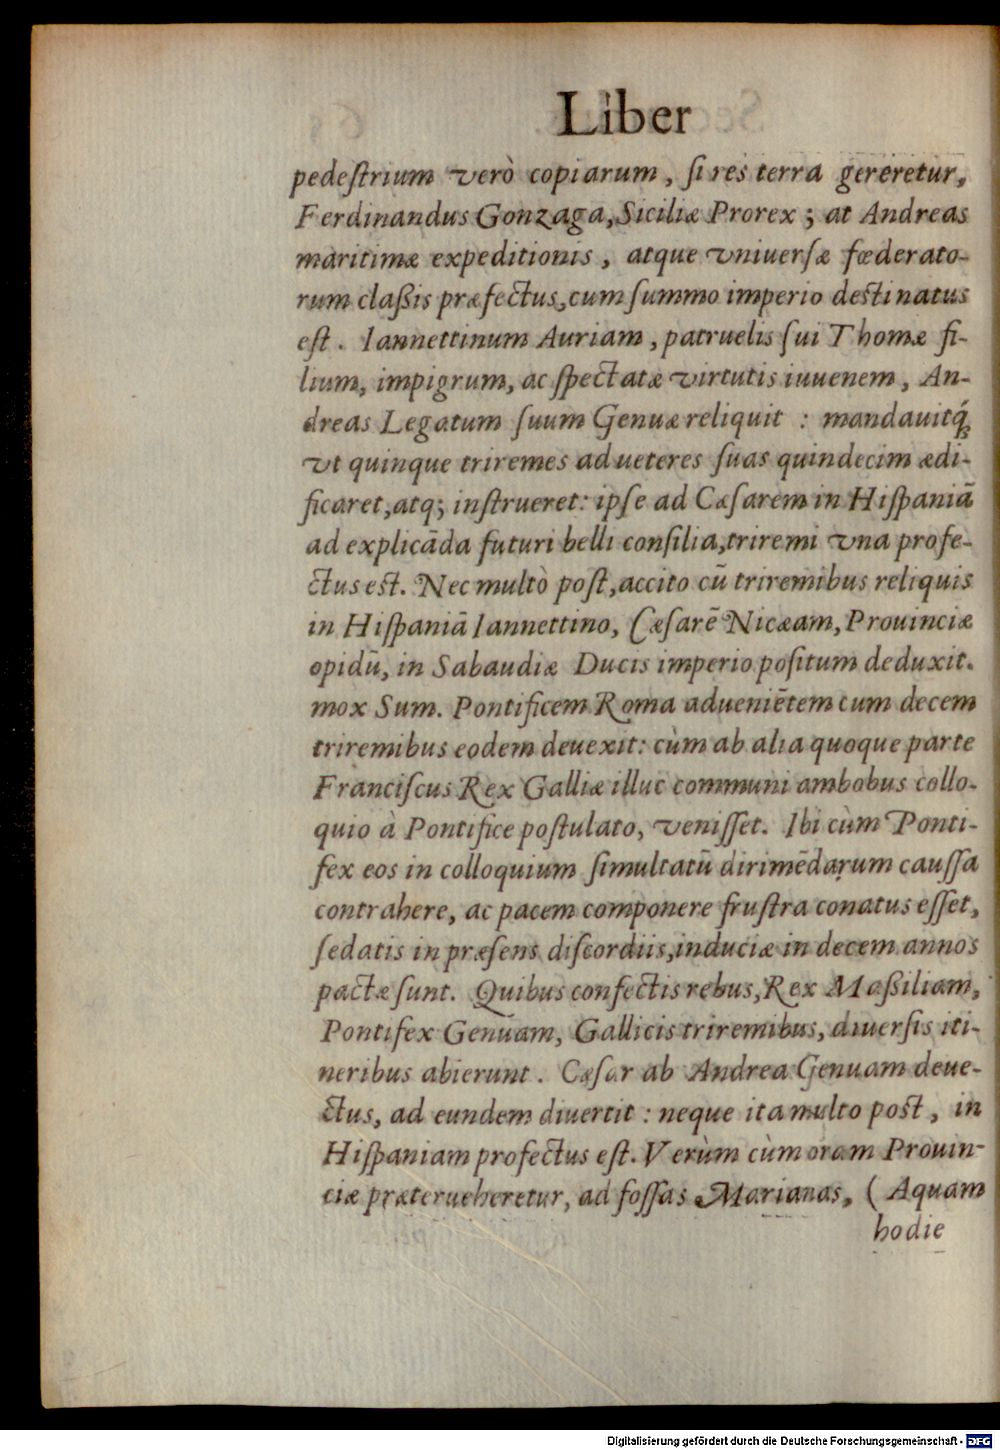 Liber
pedeſtrium verò copiarum, ſi res terra gereretur,
Ferdinandus Gonzaga, Siciliæ Prorex; at Andreas
maritimæ expeditionis, atque vniuerſæ fœderato-
rum claßis præfectus, cum ſummo imperio destinatus
eſt. Iannettinum Auriam, patruelis ſui Thomæ fi-
lium, impigrum, ac ſpectatæ virtutis iuuenem, An-
dreas Legatum ſuum Genuæ reliquit : mandauitq́;
vt quinque triremes ad ueteres ſuas quindecim ædi-
ficaret, atq; inſtrueret: ipſe ad Cæſarem in Hiſpaniā
ad explicāda futuri belli conſilia, triremi vna profe-
ctus est. Nec multò poſt, accito cū triremibus reliquis
in Hiſpaniā Iannettino, Cæſarē Nicæam, Prouinciæ
opidū, in Sabaudiæ Ducis imperio poſitum deduxit.
mox Sum. Pontificem Roma adueniētem cum decem
triremibus eodem deuexit: cùm ab alia quoque parte
Franciſcus Rex Galliæ illuc communi ambobus collo-
quio à Pontifice poſtulato, veniſſet. Ibi cùm Ponti-
fex eos in colloquium ſimultatū dirimēdarum cauſſa
contrahere, ac pacem componere fruſtra conatus eſſet,
ſedatis in præſens diſcordiis, induciæ in decem annos
pactæ ſunt. Quibus confectis rebus, Rex Maßiliam,
Pontifex Genuam, Gallicis triremibus, diuerſis iti-
neribus abierunt. Cæſar ab Andrea Genuam deue-
ctus, ad eundem diuertit : neque ita multo post, in
Hiſpaniam profectus eſt. Verùm cùm oram Prouin-
ciæ præterueheretur, ad foſſas Marianas, (Aquam
hodie
Digitalisierung gefördert durch die Deutsche Forschungsgemeinschaft - DFG